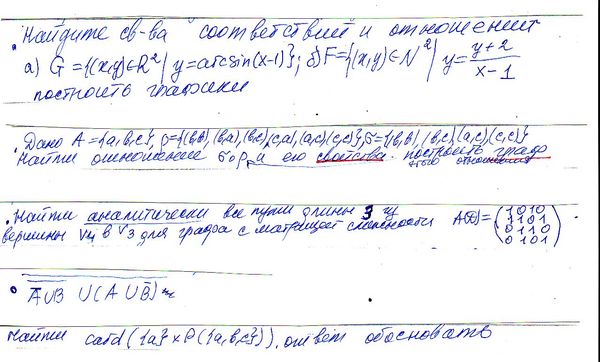 . Найдите св-ва соответствий и отношений
а) G = {(x,y)∈R² | y=arcsin(x-1)}; б) F={(x,y)∈N² | y = (y+2)/(x-1)
построить графики
. Дано A={a,b,c}, ρ={(b,b),(b,a),(b,c),(c,a),(a,c),(c,c)}, σ={(b,b),(b,c),(a,c),(c,c)}
Найти отношение σ∘ρ и его свойства. построить граф
этого отношения
. Найти аналитически все пути длины 3 из
вершины V4 в V3 для графа с матрицей смежности A(G)=
(1 0 1 0
1 1 0 1
0 1 1 0
0 1 0 1)
° A̅ ̅∪̅ ̅B̅ ∪ (A ∪ B̅)
Найти card({a}×P({a,b,c})), ответ обосновать